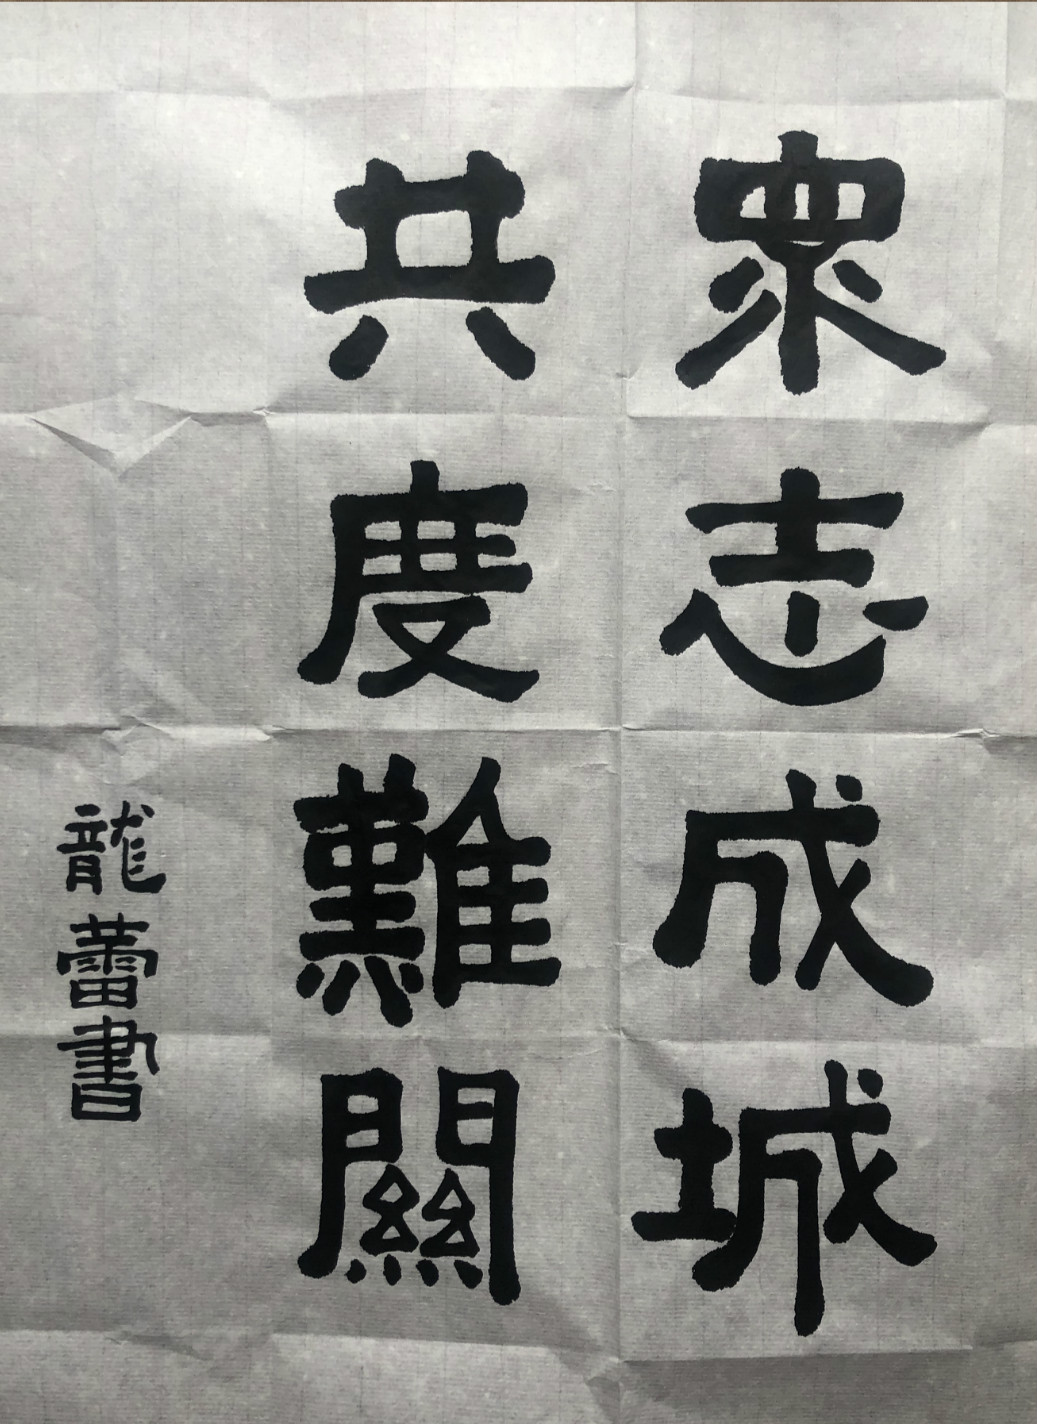 眾志成城
共度難關
龍蕾書